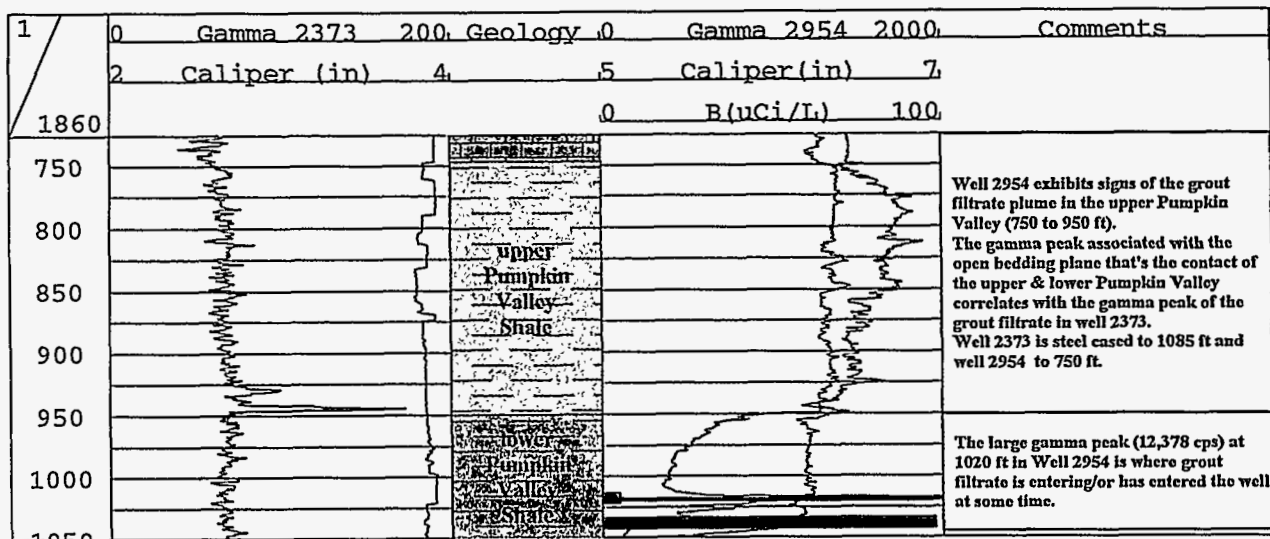 1
0 Gamma 2373 200 Geology 0 Gamma 2954 2000 Comments
2 Caliper (in) 4 5 Caliper(in) 7
0 B(uCi/L) 100
1860
750
800
850
900
950
1000
1050
upper
Pumpkin
Valley
Shale
lower
Pumpkin
Valley
Shale
Well 2954 exhibits signs of the grout
filtrate plume in the upper Pumpkin
Valley (750 to 950 ft).
The gamma peak associated with the
open bedding plane that's the contact of
the upper & lower Pumpkin Valley
correlates with the gamma peak of the
grout filtrate in well 2373.
Well 2373 is steel cased to 1085 ft and
well 2954 to 750 ft.
The large gamma peak (12,378 cps) at
1020 ft in Well 2954 is where grout
filtrate is entering/or has entered the well
at some time.